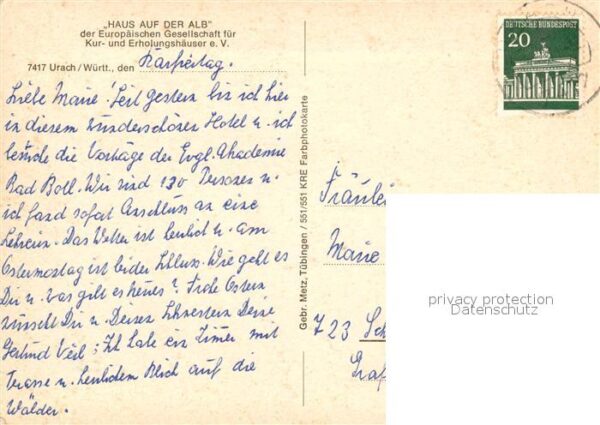 „HAUS AUF DER ALB"
der Europäischen Gesellschaft für
Kur- und Erholungshäuser e. V.
7417 Urach/Württ., den Karfreitag.
Liebe Marie! Seit gestern bin ich hier
in diesem wunderschönen Hotel u. ich
besuche die Vorträge der Evgl. Akademie
Bad Boll. Wir sind 130 Personen u.
ich fand sofort Anschluss an eine
Lehrerin. Das Wetter ist herrlich u. am
Ostermontag ist leider Schluss. Wie geht es
Dir u. was gibt es neues? Frohe Ostern
wünscht Dir u. Deinen Schwestern Deine
Gertrud Veil; Ich habe ein Zimmer mit
Terasse u. herrlichem Blick auf die
Wälder.
Gebr. Metz, Tübingen / 551/551 KRE Farbphotokarte
DEUTSCHE BUNDESPOST
20
Fräulein
Marie
723 Sch
Graf
privacy protection
Datenschutz